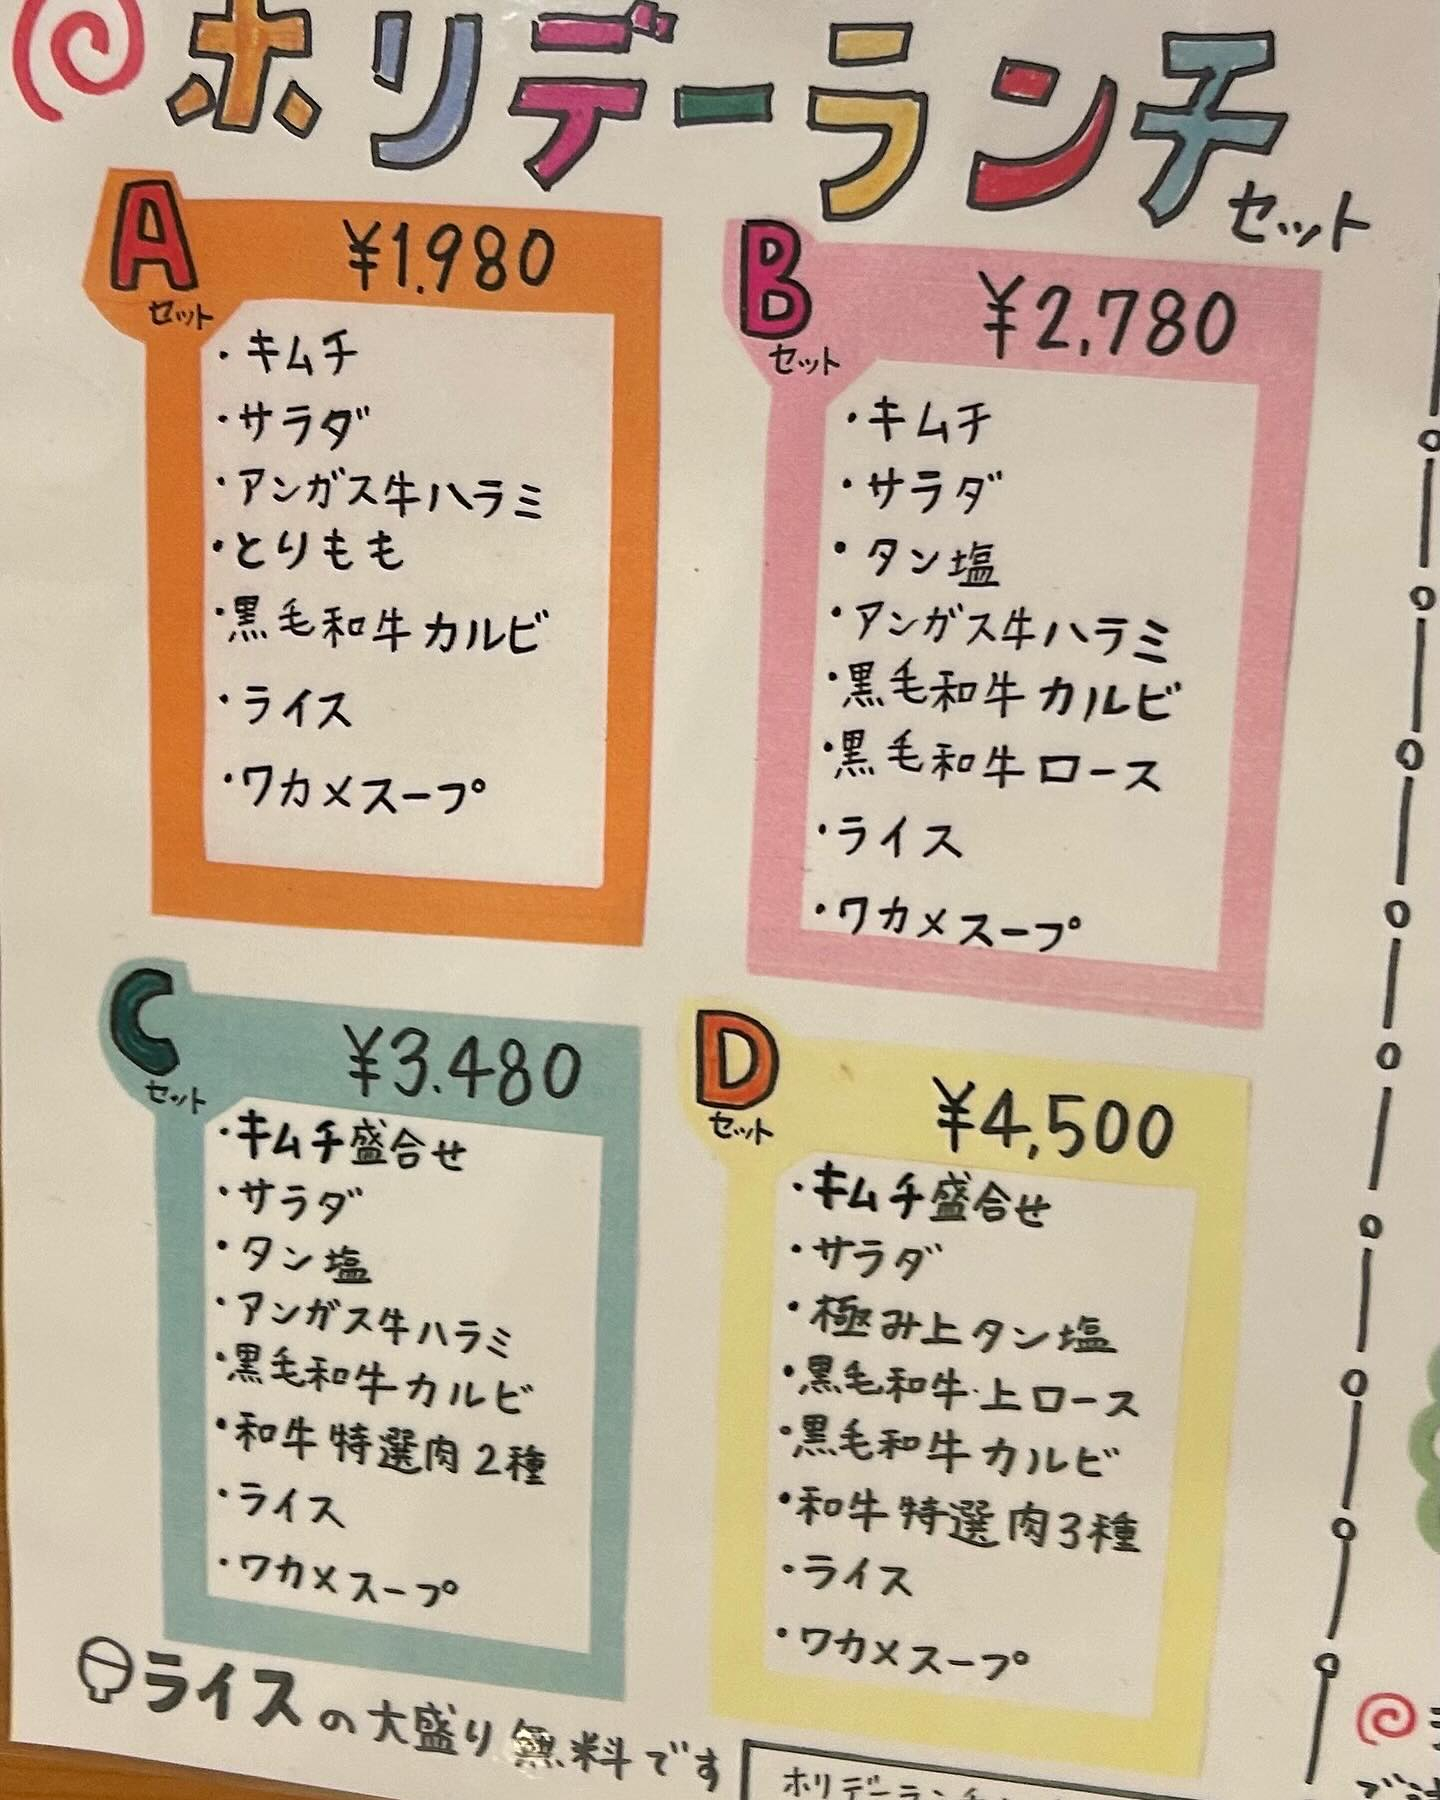 ホリデーランチセット
Aセット ¥1.980
・キムチ
・サラダ
・アンガス牛ハラミ
・とりもも
・黒毛和牛カルビ
・ライス
・ワカメスープ
Bセット ¥2,780
・キムチ
・サラダ
・タン塩
・アンガス牛ハラミ
・黒毛和牛カルビ
・黒毛和牛ロース
・ライス
・ワカメスープ
Cセット ¥3.480
・キムチ盛合せ
・サラダ
・タン塩
・アンガス牛ハラミ
・黒毛和牛カルビ
・和牛特選肉2種
・ライス
・ワカメスープ
Dセット ¥4,500
・キムチ盛合せ
・サラダ
・極み上タン塩
・黒毛和牛上ロース
・黒毛和牛カルビ
・和牛特選肉3種
・ライス
・ワカメスープ
ライスの大盛り無料です
ホリデーランチ